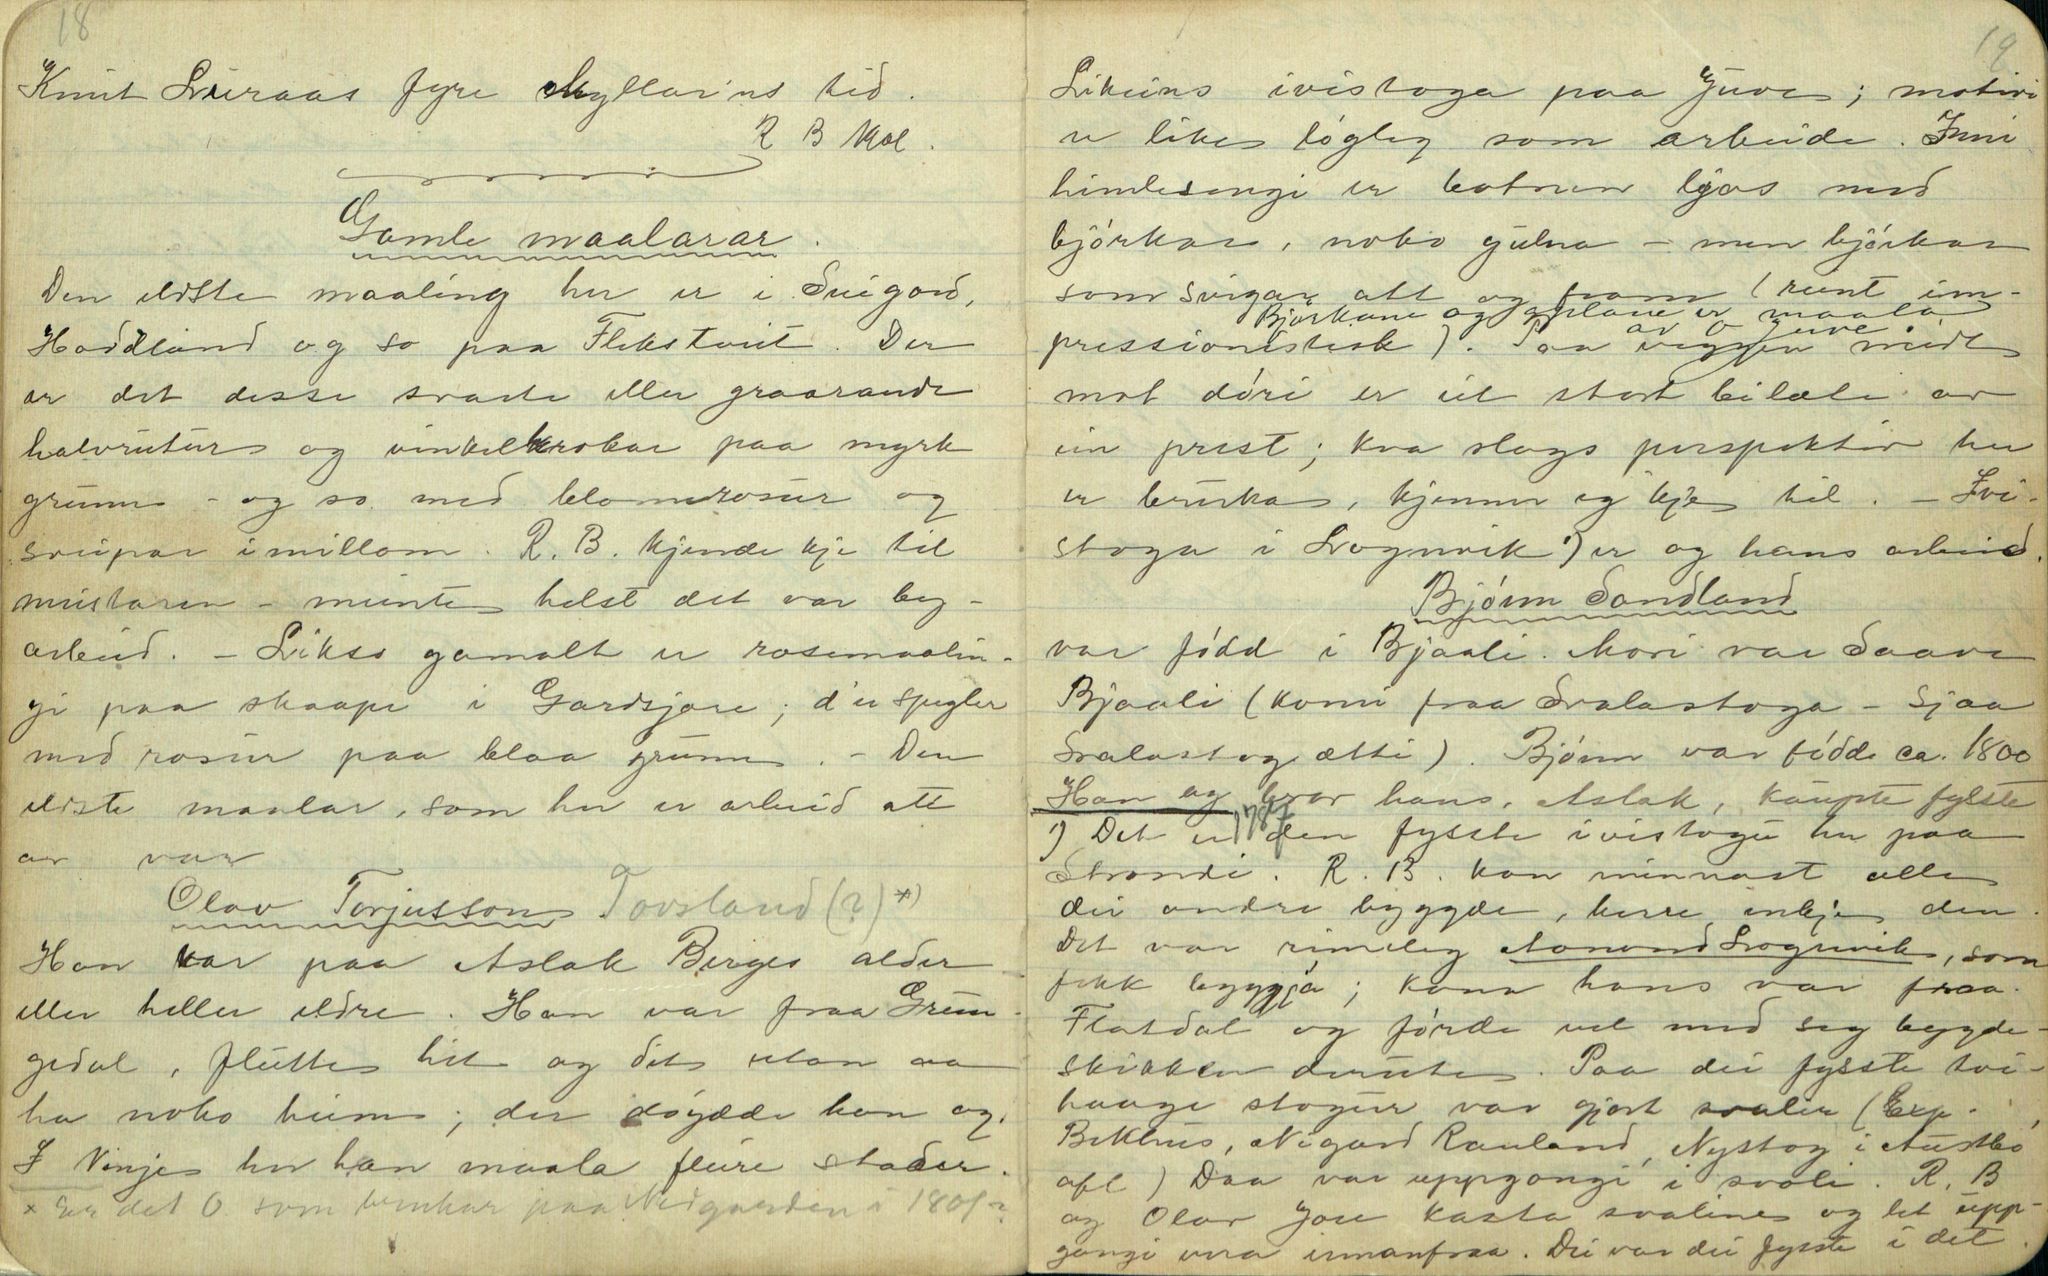 18
Knut Sveraas fyre Myllarins tid.
R B Kol.
Gamle maalarar.
Den eldste maaling her er i Suigard,
Haddland og so paa Flekstveit. Der
er det desse svarte eller graarande
halvrutur og vinkelkrokar paa myrk
grunn - og so med blomerosur og
sveipar imillom. R. B. kjende kje til
meistaren - meinte helst det var by-
arbeid. - Likso gamalt er rosemaalin-
gi paa skaape i Gardsjore; d'er spegler
med rosur paa blaa grunn. - Den
eldste maalar, som her er arbeid att
av var
Olav Torjusson Tovsland (?) *)
Han var paa Aslak Berges alder
eller heller eldre. Han var fraa Grun-
gedal, flutte hit og dit utan aa
ha noko heim; der døydde han og.
I Vinje her han maala fleire stader.
* Er det O. som brukar paa Nedgarden i 1801?
19
Likeins ivistoga paa Juve; motivi
er likes løgleg som arbeide. Inni
himlesengi er botnen ljos med
bjørkar, noko gulna - men bjørkar
som svigar att og fram (reint im-
Bjørkane og gplane er maala
av O Juve.
pressionistisk). Paa veggen midt
mot døri er eit stort bilæte av
ein prest; kva slags perspektiv her
er bruka, kjenner eg kje til. - Ivi-
stoga i Lognvik ¹) er og hans arbeid.
Bjørn Sandland
var fødd i Bjaali. Mori var Saave
Bjaali (komi fraa Svalastoga - sjaa
Svalastogætti). Bjørn var fødde ca. 1800
Han og bror hans, Aslak, kaupte fyste
1787
¹) Det er den fysste ivistogu her paa
Strondi. R. B. kan minnast alle
dei andre bygde, berre inkje den.
Det var rimeleg Aanond Lognvik, som
fekk byggja; kona hans var fraa
Flatdal og førde vel med seg bygde-
skikken derute. Paa dei fysste tvi-
haage stogur var gjort svaler (Exp.
Bekhus, Nigard Rauland, Nystog i Austbø
ofl) Daa var uppgongi i svoli. R. B
og Olav Jore kasta svaline og let upp-
gongi vera inmanfraa. Dei var dei fysste i det.